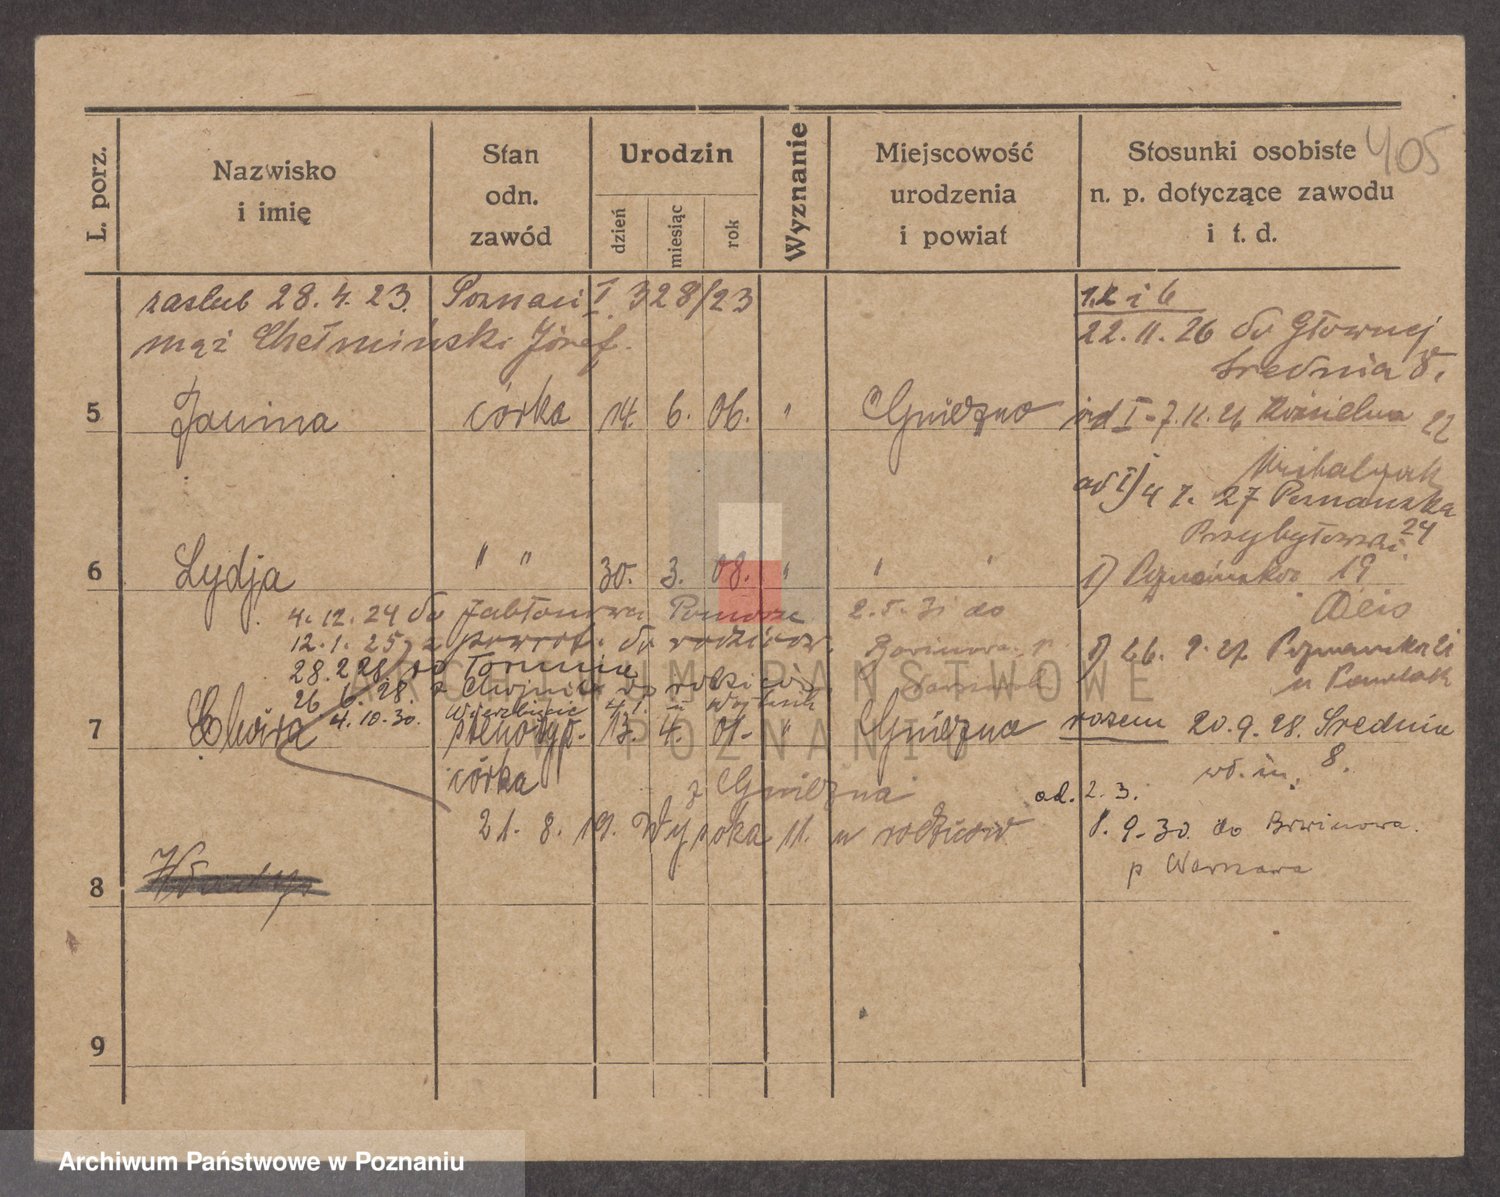 405
L. porz.
Nazwisko
i imię
Stan
odn.
zawód
Urodzin
dzień
miesiąc
rok
Wyznanie
Miejscowość
urodzenia
i powiat
Stosunki osobiste
n. p. dotyczące zawodu
i t. d.
zaślub 28.4.23. Poznań I 328/23
mąż Chełmiński Józef.
i 6
22.11.26 do Głównej
Średnia 8.
5 Janina córka 14. 6. 06. " Gniezno
od I - 7.11.26 Kościelna 22
od I) 4 7. 27 Poznańska
24
6 Lydja " " 30. 3. 08. " " "
1) Poznańska 19
4.12.24 do Jabłonowa Pomorze
2.5.31 do
12.1.25 z powrot. do rodziców.
26. 9. 27. Poznańska 21
u
28.2.28. do Torunia
26 6. 28. z Chojnic do rodziców
4.10.30.
7 stenotyp. 13. 4. 01. " Gniezno
córka
razem 20.9.28. Średnia
8.
z Gniezna
od. 2. 3.
21. 8. 19. Wysoka 11. u rodziców
1. 9. 30. do Brwinowa.
p Warszawa
8
9
ARCHIWUM PAŃSTWOWE
W POZNANIU
Archiwum Państwowe w Poznaniu